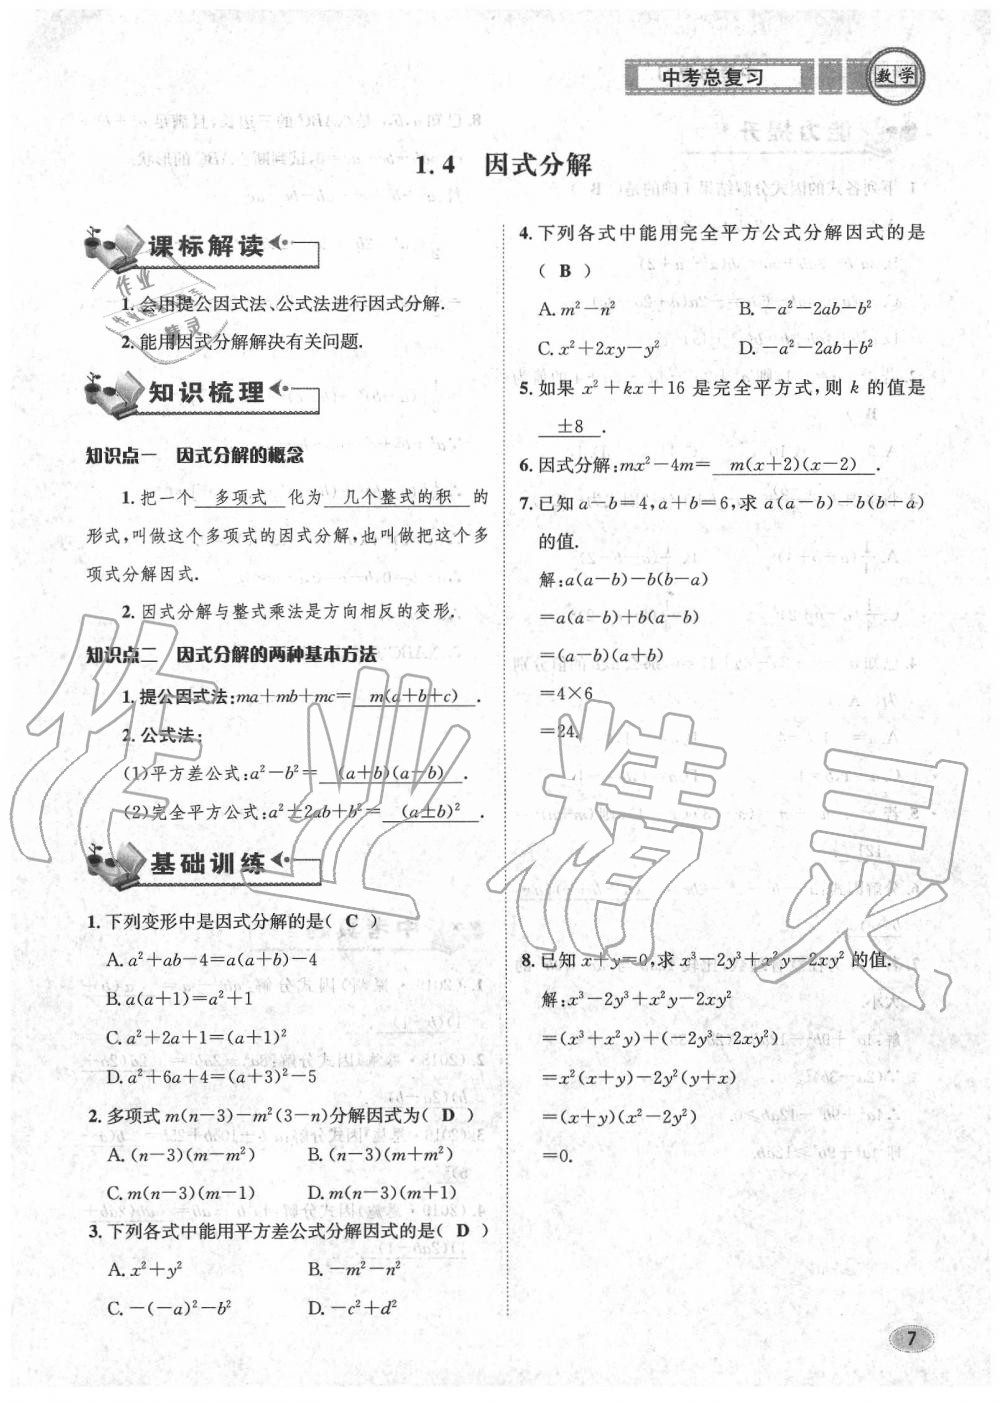 中考总复习 数学
1.4 因式分解
课标解读
1. 会用提公因式法、公式法进行因式分解.
2. 能用因式分解解决有关问题.
知识梳理
知识点一 因式分解的概念
1. 把一个 多项式 化为 几个整式的积 的
形式,叫做这个多项式的因式分解,也叫做把这个多
项式分解因式.
2. 因式分解与整式乘法是方向相反的变形.
知识点二 因式分解的两种基本方法
1. 提公因式法:ma+mb+mc= m(a+b+c) .
2. 公式法:
(1)平方差公式:a²-b²= (a+b)(a-b) .
(2)完全平方公式:a²±2ab+b²= (a±b)² .
基础训练
1. 下列变形中是因式分解的是( C )
A. a²+ab-4=a(a+b)-4
B. a(a+1)=a²+1
C. a²+2a+1=(a+1)²
D. a²+6a+4=(a+3)²-5
2. 多项式 m(n-3)-m²(3-n)分解因式为( D )
A. (n-3)(m-m²) B. (n-3)(m+m²)
C. m(n-3)(m-1) D. m(n-3)(m+1)
3. 下列各式中能用平方差公式分解因式的是( D )
A. x²+y² B. -m²-n²
C. -(-a)²-b² D. -c²+d²
4. 下列各式中能用完全平方公式分解因式的是
( B )
A. m²-n² B. -a²-2ab-b²
C. x²+2xy-y² D. -a²-2ab+b²
5. 如果 x²+kx+16 是完全平方式,则 k 的值是
±8 .
6. 因式分解:mx²-4m= m(x+2)(x-2) .
7. 已知 a-b=4,a+b=6,求 a(a-b)-b(b-a)
的值.
解:a(a-b)-b(b-a)
=a(a-b)+b(a-b)
=(a-b)(a+b)
=4×6
=24.
8. 已知 x+y=0,求 x³-2y³+x²y-2xy² 的值.
解:x³-2y³+x²y-2xy²
=(x³+x²y)+(-2y³-2xy²)
=x²(x+y)-2y²(y+x)
=(x+y)(x²-2y²)
=0.
7
作业精灵